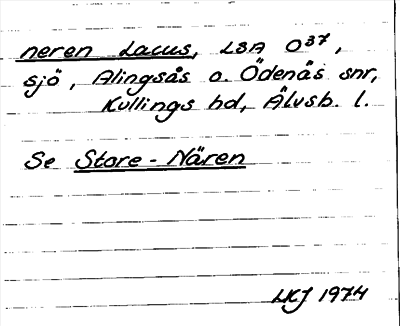 neren Lacus, LSA O³⁷,
sjö, Alingsås o. Ödenäs snr,
Kullings hd, Älvsb. l.
Se Store - Nären
LKJ 1974